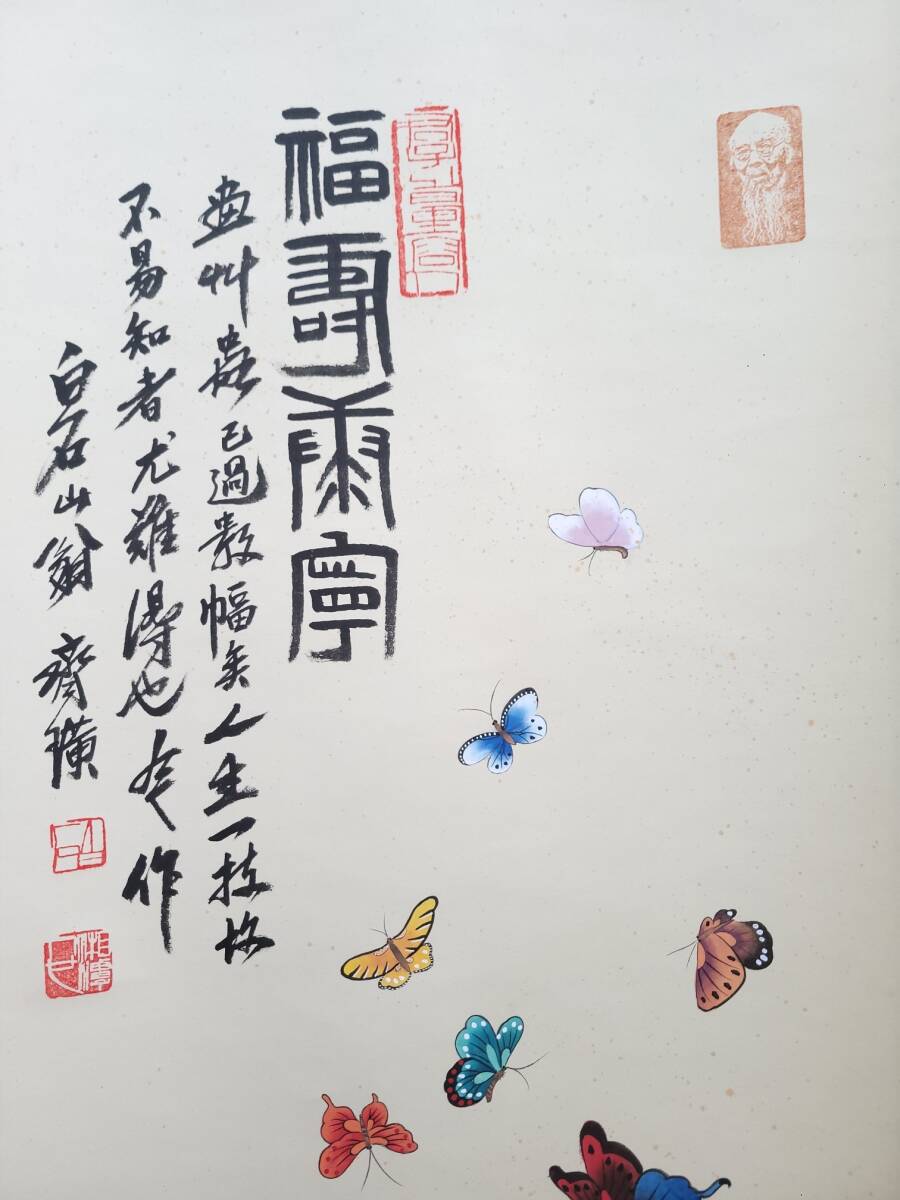 福壽康寧
畫艸蟲已過數幅矣人生一技故
不易知者尤難得也今作
白石山翁齊璜